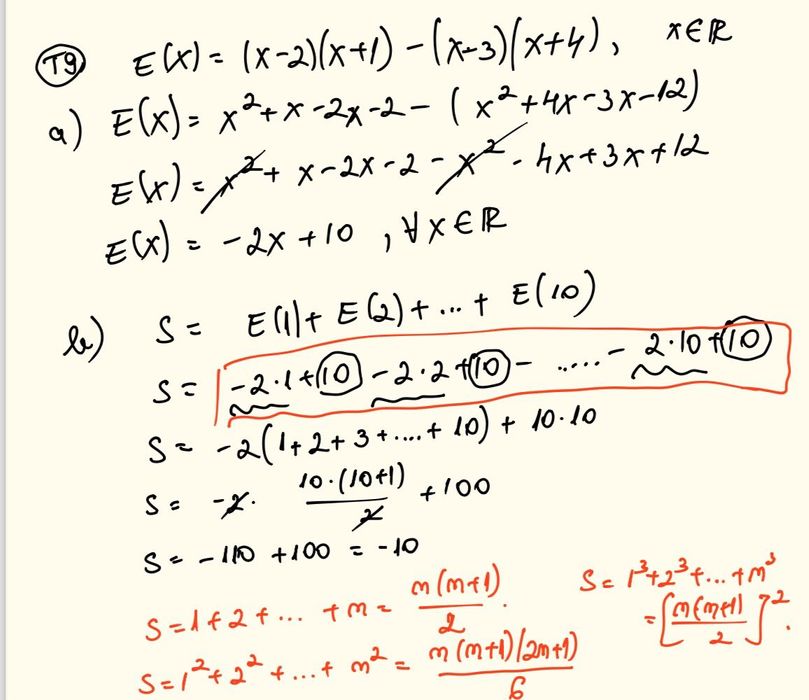 T9) E(x) = (x-2)(x+1) - (x-3)(x+4), x∈ℝ
a) E(x) = x² + x - 2x - 2 - (x² + 4x - 3x - 12)
E(x) = x² + x - 2x - 2 - x² - 4x + 3x + 12
E(x) = -2x + 10, ∀x∈ℝ
b) S = E(1) + E(2) + ... + E(10)
S = -2·1+10 -2·2+10 - ..... - 2·10+10
S = -2(1+2+3+....+10) + 10·10
S = -2· 10·(10+1)/2 + 100
S = -110 + 100 = -10
S = 1+2+...+m = m(m+1)/2.
S = 1²+2²+...+m² = m(m+1)(2m+1)/6
S = 1³+2³+...+m³
= [m(m+1)/2]².